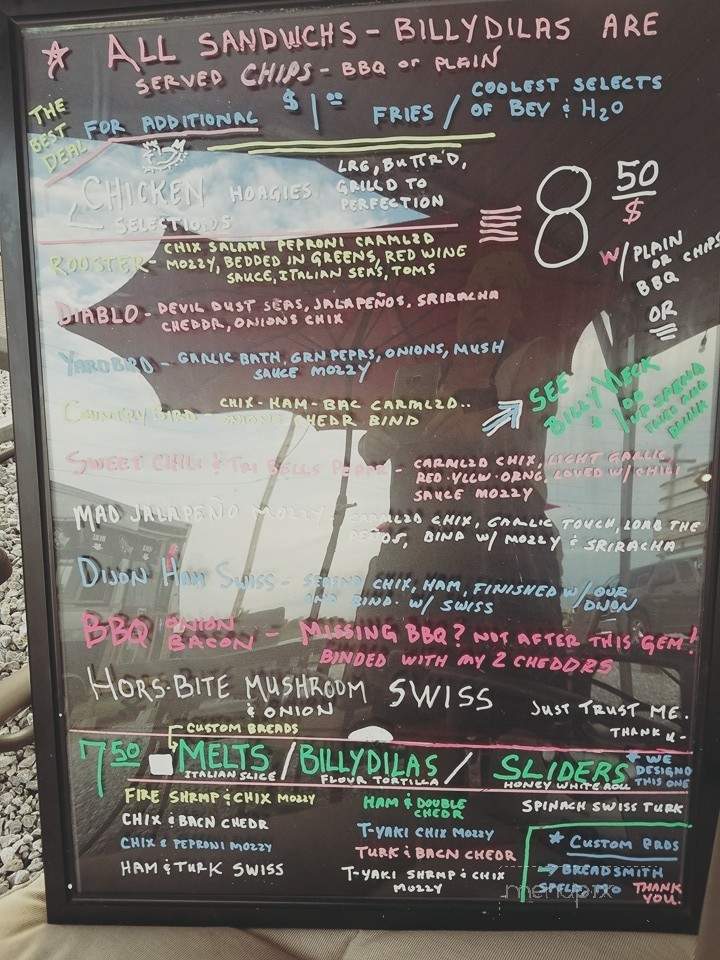 * ALL SANDWCHS - BILLYDILAS ARE
SERVED CHIPS - BBQ or PLAIN
THE BEST DEAL
FOR ADDITIONAL $1.00 FRIES / COOLEST SELECTS
OF BEV & H2O
CHICKEN HOAGIES LRG, BUTTR'D,
GRILL'D TO
PERFECTION
SELECTIONS
8 50
$
W/ PLAIN
OR
BBQ CHIPS
OR
ROOSTER - CHIX SALAMI PEPRONI CARMLZD
MOZZY, BEDDED IN GREENS, RED WINE
SAUCE, ITALIAN SEAS, TOMS
DIABLO - DEVIL DUST SEAS, JALAPEÑOS, SRIRACHA
CHEDDR, ONIONS CHIX
YARDBIRD - GARLIC BATH, GRN PEPRS, ONIONS, MUSH
SAUCE MOZZY
SEE
BILLY NECK
COUNTRY BIRD - CHIX - HAM - BAC CARMLZD..
ONIONS CHEDR BIND
SWEET CHILI & TRI BELLS PEPPR - CARMLZD CHIX, LIGHT GARLIC,
RED·YLLW·ORNG, LOVED W/ CHILI
SAUCE MOZZY
MAD JALAPEÑO MOZZY - CARMLZD CHIX, GARLIC TOUCH, LOAD THE
PEÑOS, BIND W/ MOZZY & SRIRACHA
DIJON HAM SWISS - CHIX, HAM, FINISHED W/ OUR
BIND. W/ SWISS DIJON
BBQ ONION
BACON - MISSING BBQ? NOT AFTER THIS GEM!
BINDED WITH MY 2 CHEDDRS
HORS-BITE MUSHROOM SWISS
& ONION
JUST TRUST ME.
THANK U -
CUSTOM BREADS
7 50 MELTS / BILLYDILAS / SLIDERS
ITALIAN SLICE FLOUR TORTILLA HONEY WHITE ROLL
* WE
DESIGND
THIS ONE
FIRE SHRMP & CHIX MOZZY
CHIX & BACN CHEDR
CHIX & PEPRONI MOZZY
HAM & TURK SWISS
HAM & DOUBLE
CHEDR
T-YAKI CHIX MOZZY
TURK & BACN CHEDR
T-YAKI SHRMP & CHIX
MOZZY
SPINACH SWISS TURK
* CUSTOM BRDS
BREADSMITH
THANK
YOU.
menupix